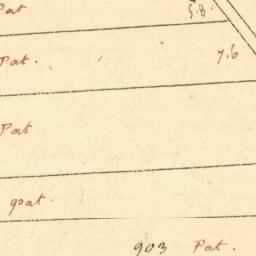 Pat 5.8
Pat. 7.6
Pat
grat.
903 Pat.